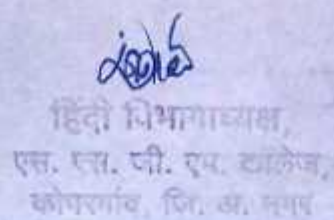 हिंदी विभागाध्यक्ष,
एस. एस. जी. एम. कॉलेज,
कोपरगांव, जि. अ. नगर